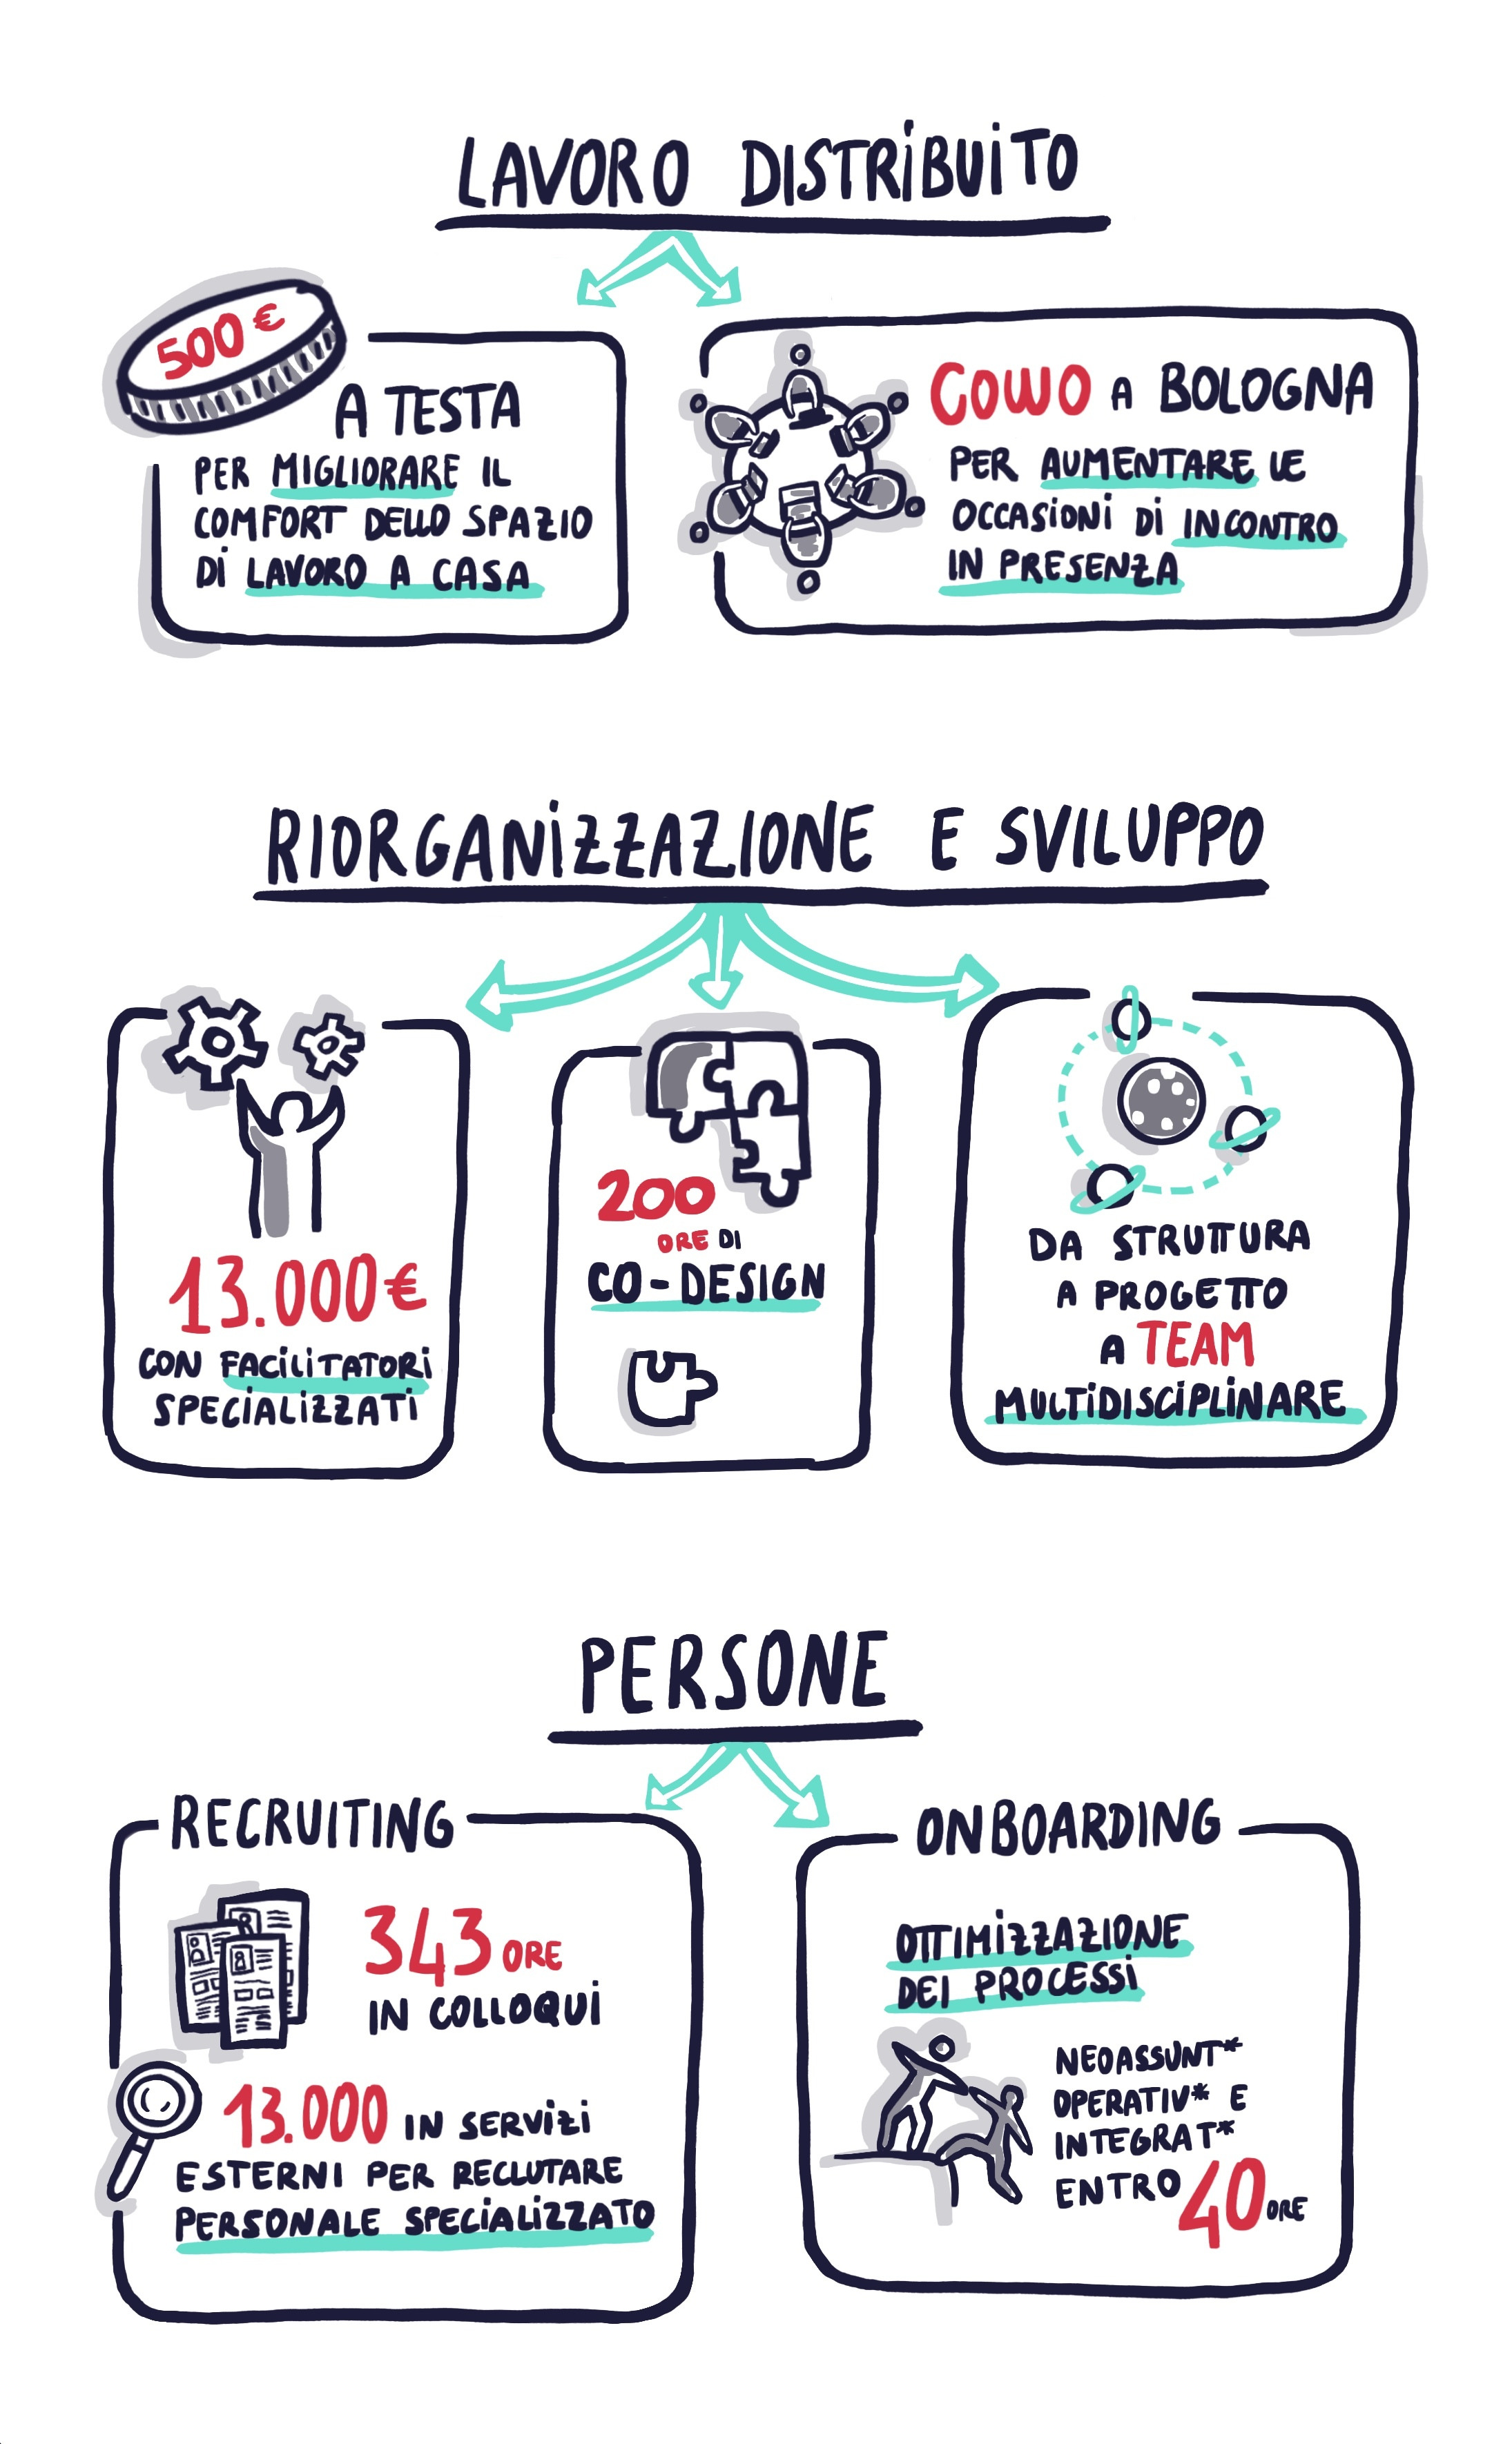 LAVORO DISTRIBUITO
500 €
A TESTA
PER MIGLIORARE IL
COMFORT DELLO SPAZIO
DI LAVORO A CASA
COWO A BOLOGNA
PER AUMENTARE LE
OCCASIONI DI INCONTRO
IN PRESENZA
RIORGANIZZAZIONE E SVILUPPO
13.000€
CON FACILITATORI
SPECIALIZZATI
200
ORE DI
CO-DESIGN
DA STRUTTURA
A PROGETTO
A TEAM
MULTIDISCIPLINARE
PERSONE
RECRUITING
343 ORE
IN COLLOQUI
13.000 IN SERVIZI
ESTERNI PER RECLUTARE
PERSONALE SPECIALIZZATO
ONBOARDING
OTTIMIZZAZIONE
DEI PROCESSI
NEOASSUNT*
OPERATIV* E
INTEGRAT*
ENTRO 40 ORE